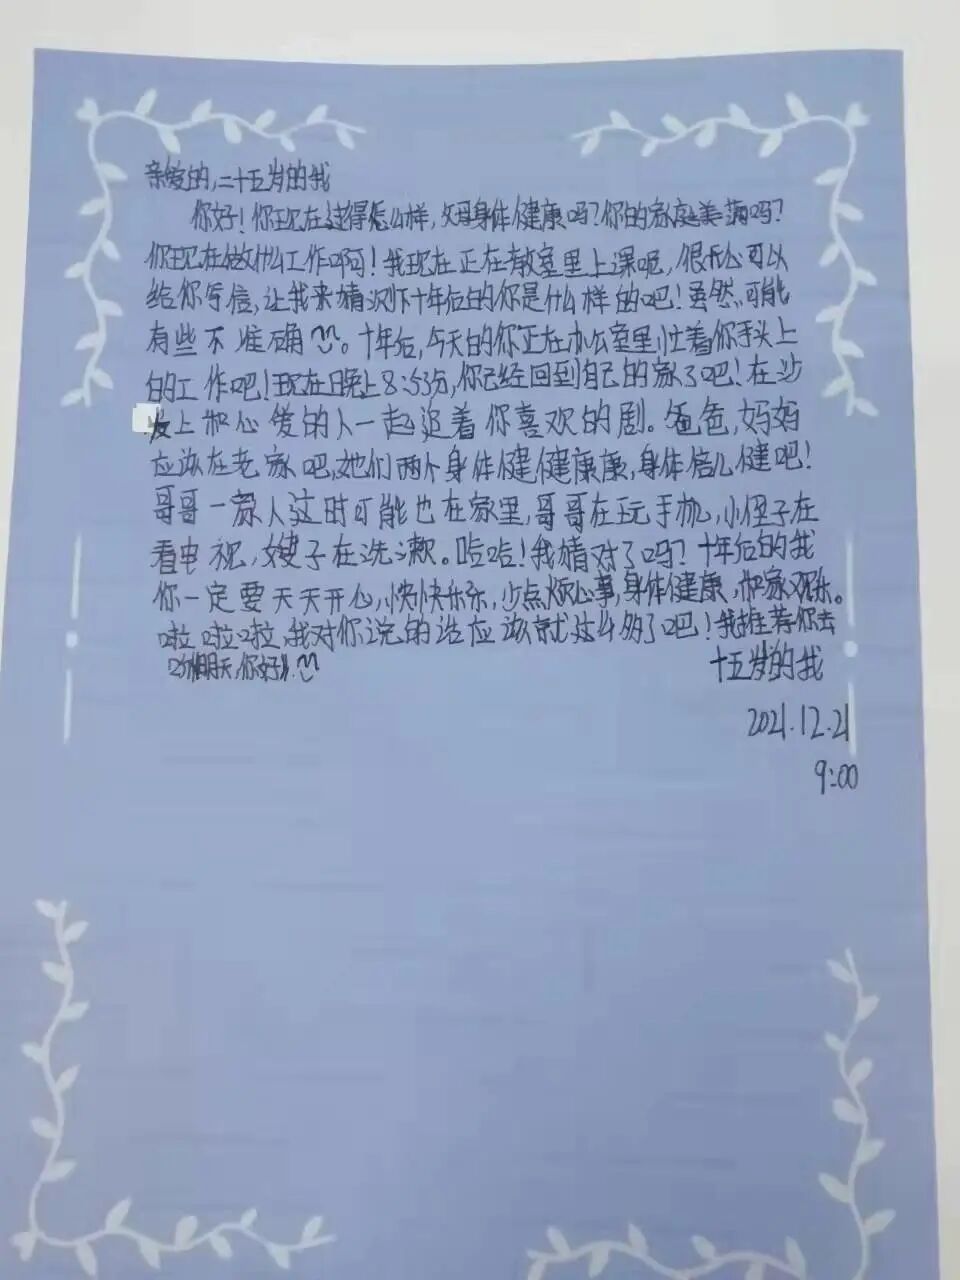 亲爱的,二十五岁的我
你好!你现在过得怎么样,父母身体健康吗?你的家庭美满吗?
你现在做什么工作啊!我现在正在教室里上课呢,很开心可以
给你写信,让我来猜次下十年后的你是什么样的吧!虽然,可能
有些不准确。十年后,今天的你正在办公室里忙着你手头上
的工作吧!现在晚上8:53分,你已经回到自己的家了吧!在沙
发上和心爱的人一起追着你喜欢的剧。爸爸,妈妈
应该在老家吧,她们两个身体健健康康,身体倍儿健吧!
哥哥一家人这时可能也在家里,哥哥在玩手机,小侄子在
看电视,嫂子在洗漱。哈哈!我猜对了吗?十年后的我
你一定要天天开心,快快乐乐,少点烦心事,身体健康,和家欢乐。
啦啦啦,我对你说的话应该就这么多了吧!我推荐你去
听《明天,你好》.
十五岁的我
2021.12.21
9:00